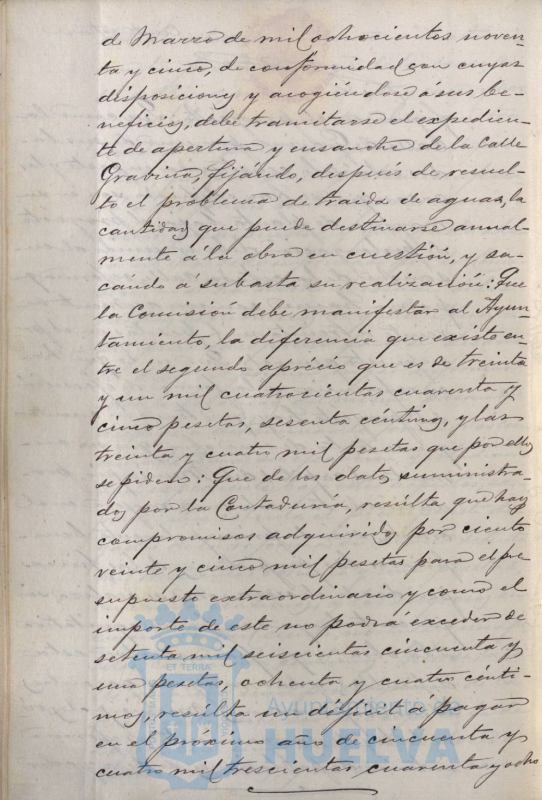 de Marzo de mil ochocientos noven-
ta y cinco, de conformidad con cuyas
disposiciones y acogiéndose á sus be-
neficios, debe tramitarse el expedien-
te de apertura y ensanche de la Calle
Gravina, fijando, después de resuel-
to el problema de traida de aguas, la
cantidad que puede destinarse anual-
mente á la obra en cuestión, y sa-
cando á subasta su realización: Que
la Comisión debe manifestar al Ayun-
tamiento, la diferencia que existe en-
tre el segundo aprécio que es de treinta
y un mil cuatrocientas cuarenta y
cinco pesetas, sesenta céntimos, y las
treinta y cuatro mil pesetas que por ellos
se piden: Que de los datos suministra-
dos por la Contaduría, resulta que hay
compromisos adquiridos por ciento
veinte y cinco mil pesetas para el pre
supuesto extraordinario y como el
importe de este no podrá exceder de
setenta mil seiscientas cincuenta y
una pesetas, ochenta y cuatro cénti-
mos, resulta un déficit á pagar
en el próximo año de cincuenta y
cuatro mil trescientas cuarenta y ocho
ET TERRA
Ayuntamiento de
HUELVA